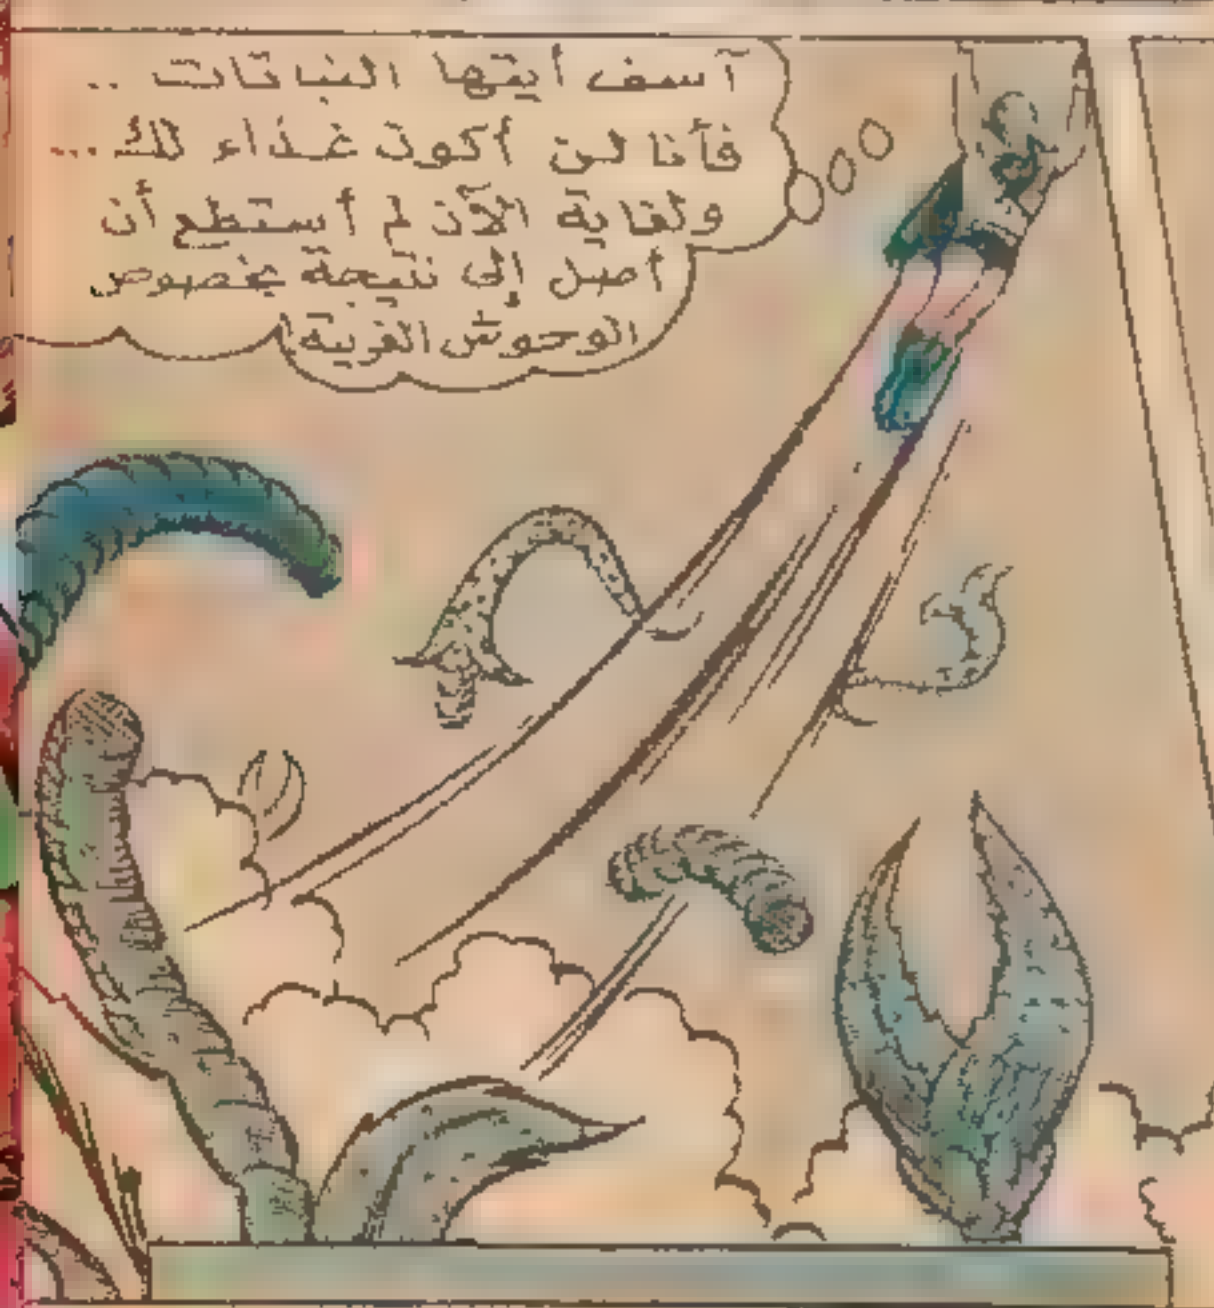 آسف أيتها النباتات ..
فأنا لن أكون غذاء لك...
ولغاية الآن لم أستطع أن
أصل إلى نتيجة بخصوص
الوحوش الغريبة!